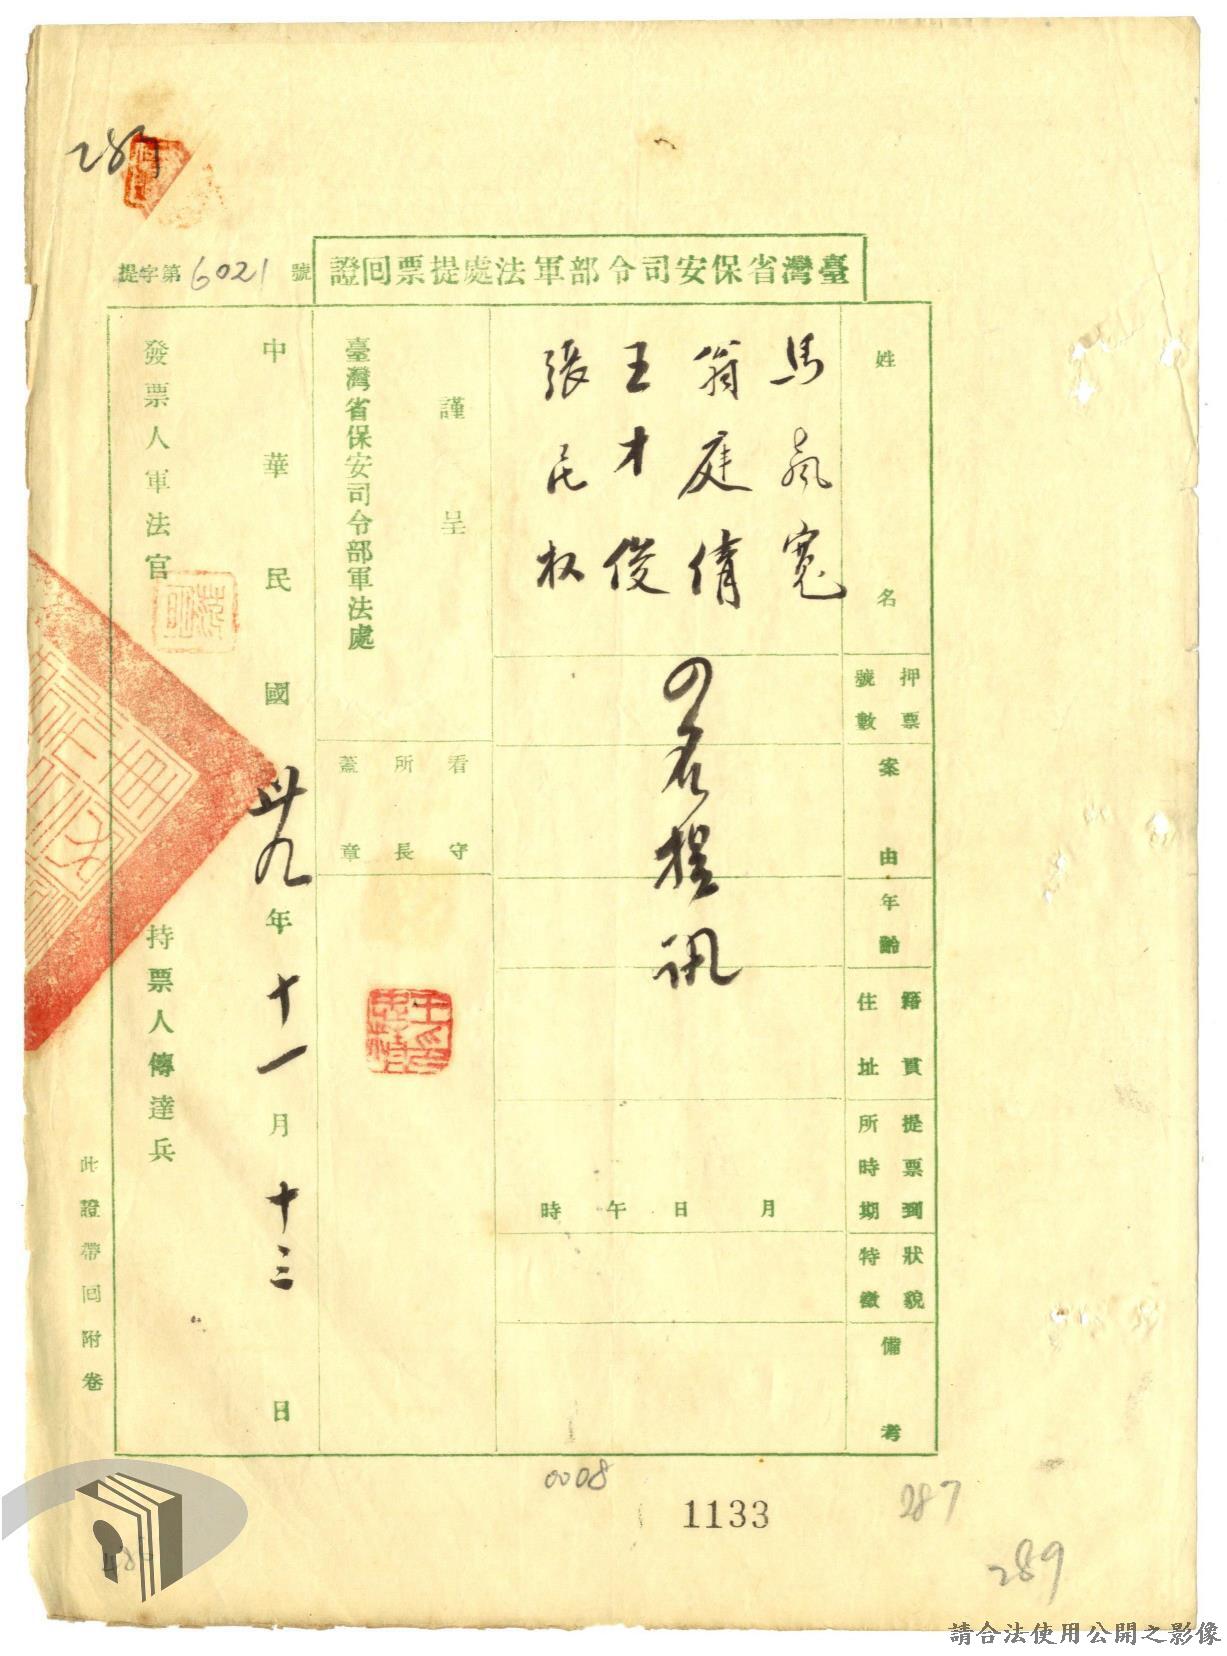 287
臺灣省保安司令部軍法處提票回證
提字第6021號
姓名
押票號數
案由
年齡
籍貫住址
提票到所時期
狀貌特徵
備考
馬 寬
翁庭倩
王才俊
張民权
の名提訊
月 日 午 時
謹呈
臺灣省保安司令部軍法處
看守所長蓋章
中華民國卅九年十一月十三日
發票人軍法官
持票人傳達兵
此證帶回附卷
0008
1133
287
289
請合法使用公開之影像